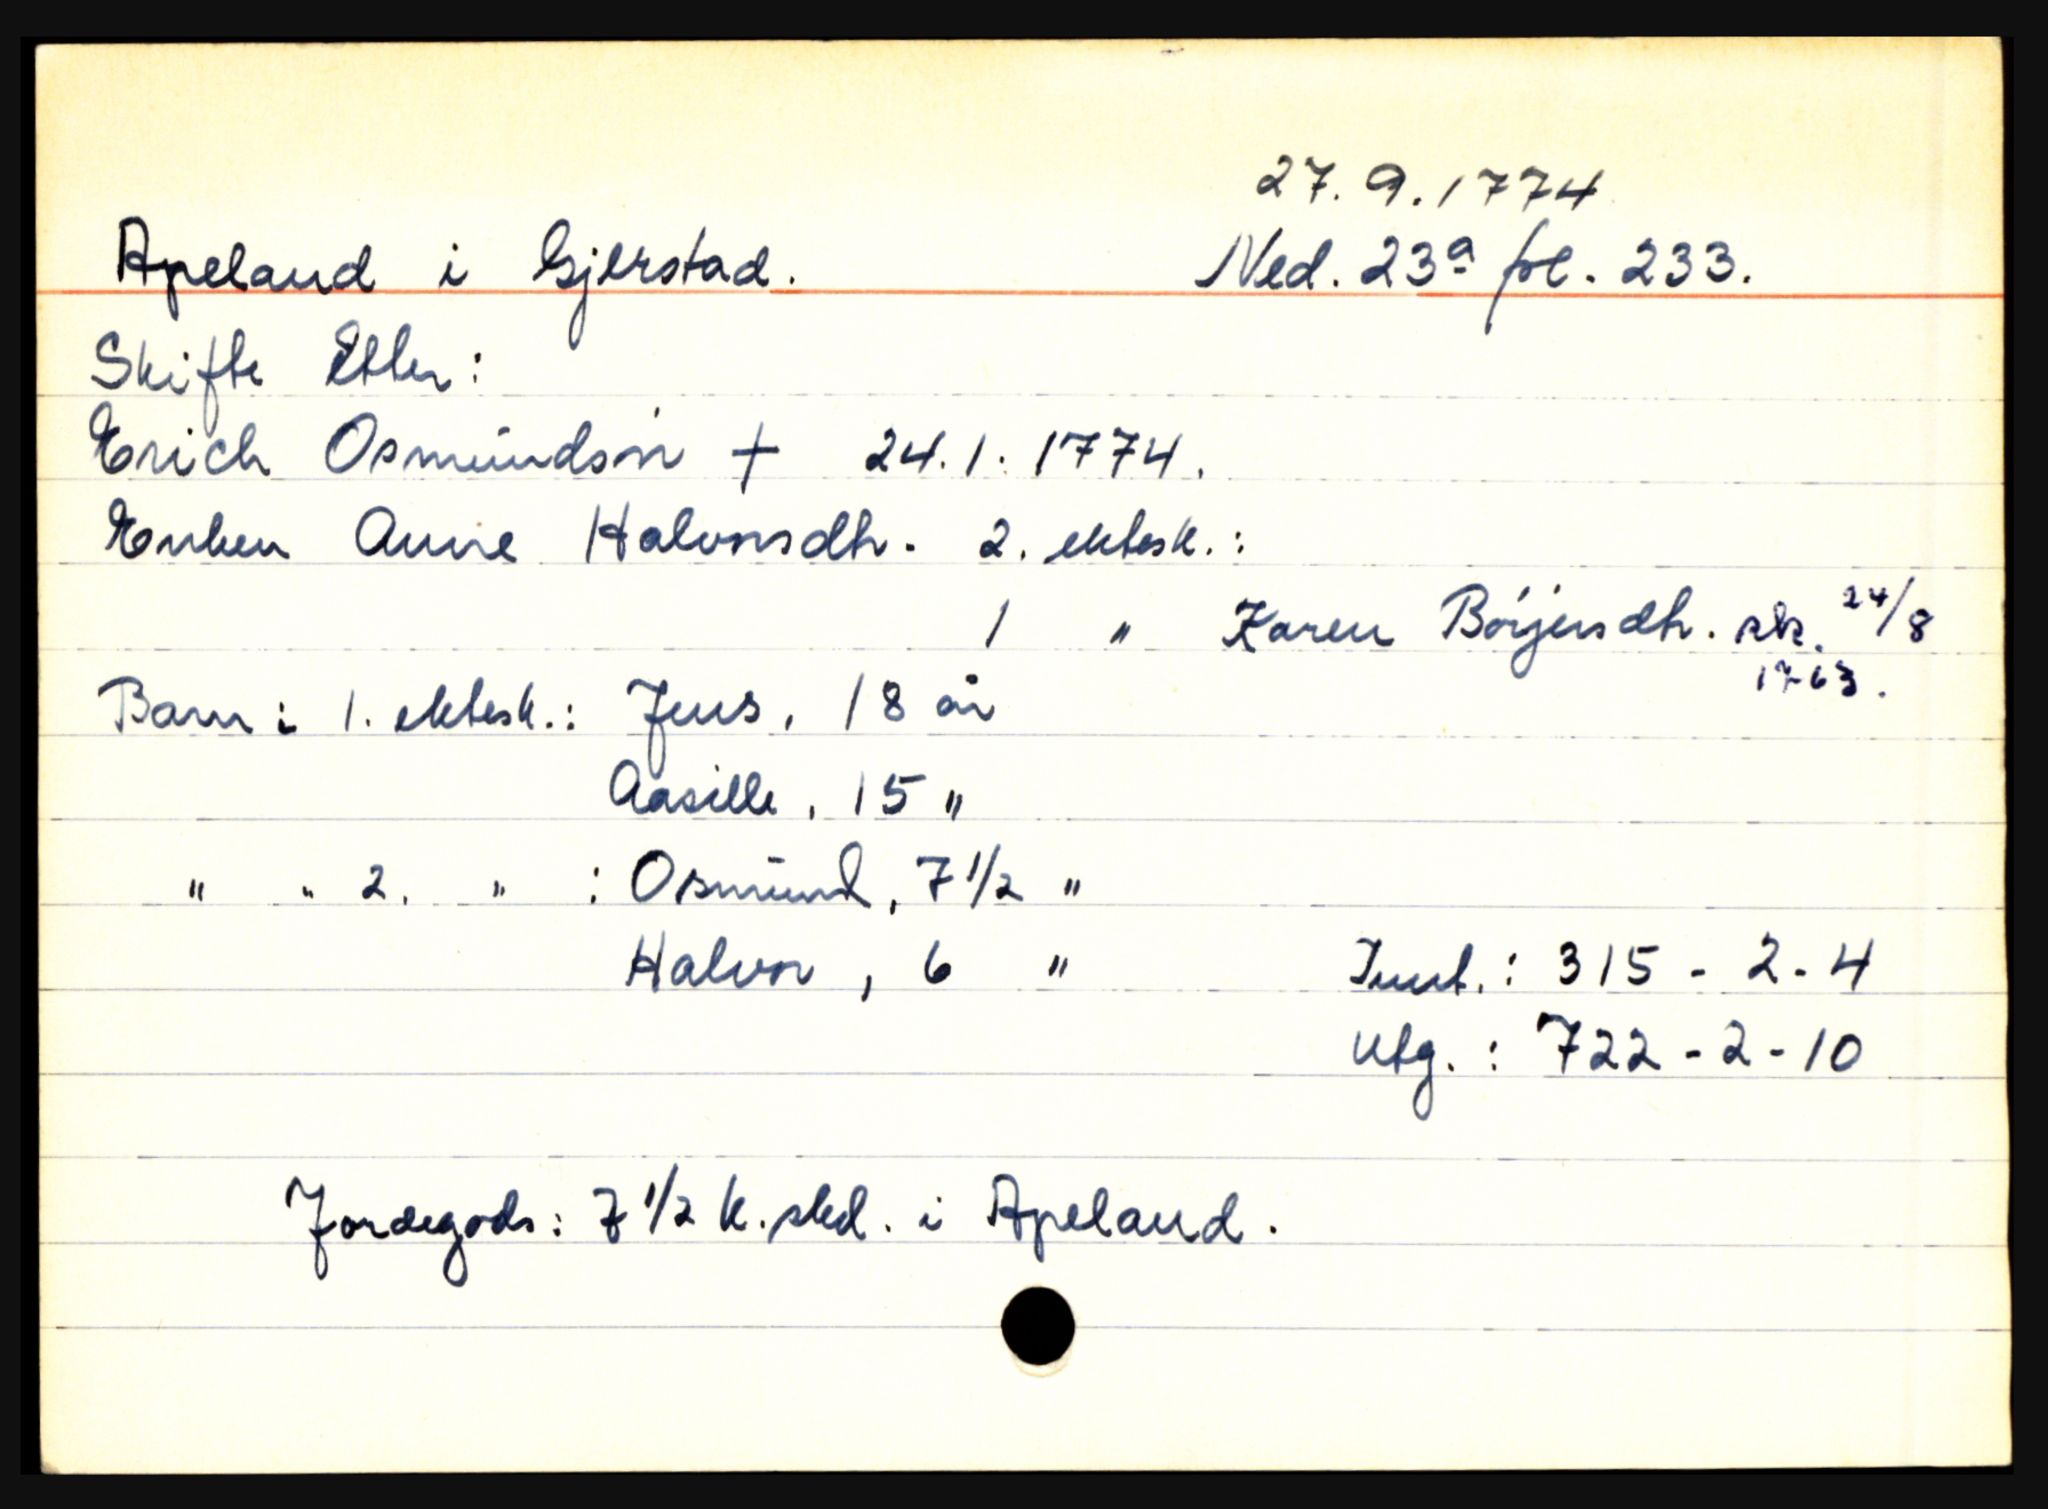 27.9.1774
Apeland i Gjerstad. Ned. 23a fol. 233.
Skifte Etter:
Erich Osmundsn + 24.1.1774.
Enken Anne Halvorsdtr. 2. ektesk.:
1 " Karen Börjersdtr. sk. 24/8
1763.
Barn i 1. ektesk.: Jens, 18 år
Aasille, 15 "
" " 2. " : Osmund, 7 1/2 "
Halvor, 6 " Innt.: 315 - 2 - 4
Utg.: 722 - 2 - 10
Jordegods: 7 1/2 k.skd. i Apeland.